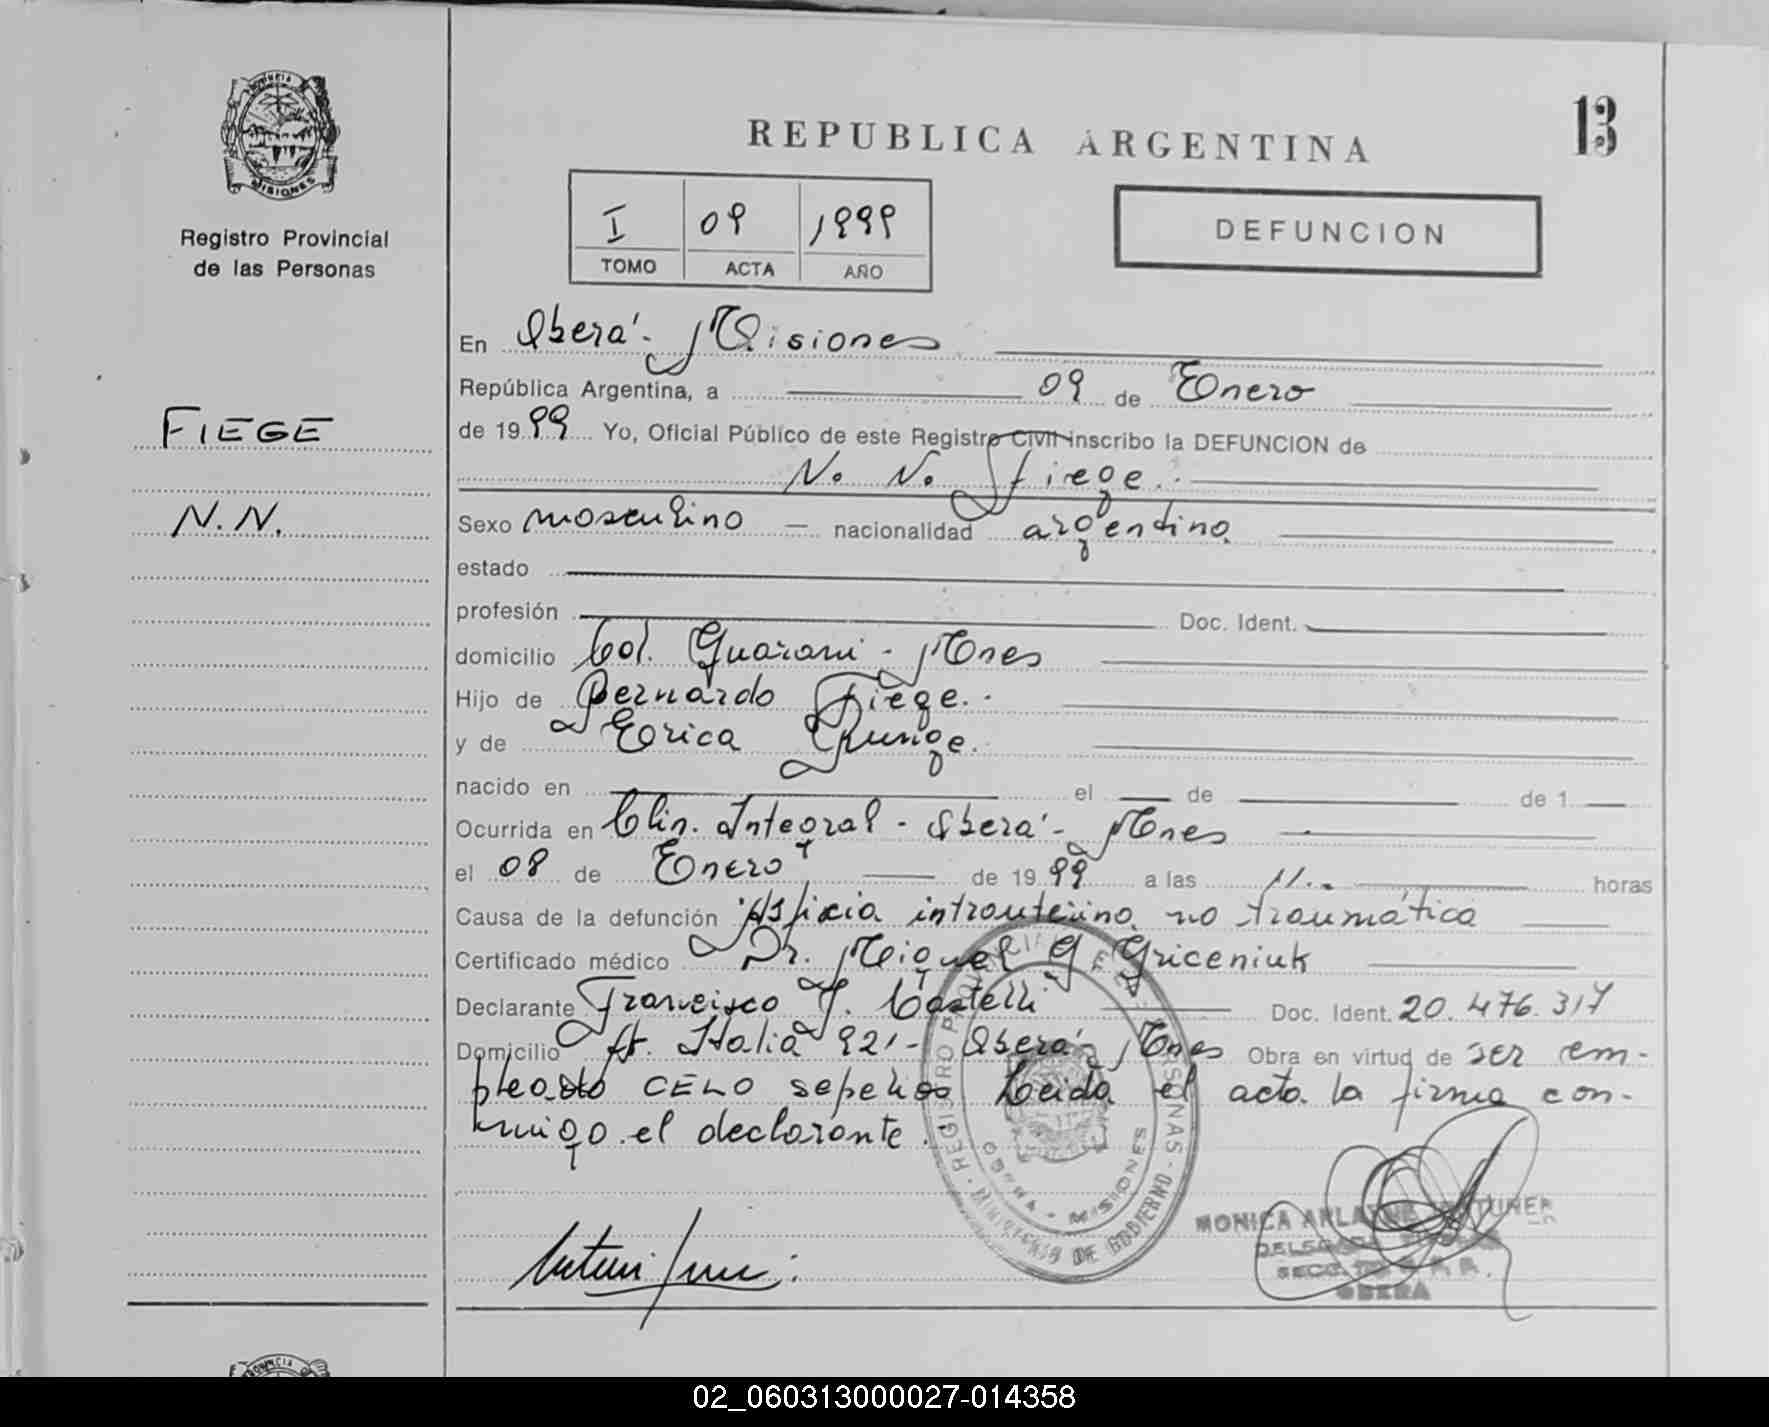 PROVINCIA
MISIONES
Registro Provincial
de las Personas
FIEGE
N.N.
13
REPUBLICA ARGENTINA
I 09 1999
TOMO ACTA AÑO
DEFUNCION
En Oberá - Misiones
República Argentina, a 09 de Enero
de 1999 Yo, Oficial Público de este Registro Civil inscribo la DEFUNCION de
N. N. Fiege.
Sexo masculino — nacionalidad argentina
estado
profesión Doc. Ident.
domicilio Col. Guarani - Mnes
Hijo de Bernardo Fiege.
y de Erica Runge.
nacido en el de de 1
Ocurrida en Clin. Integral - Oberá - Mnes
el 08 de Enero de 1999 a las 11.- horas
Causa de la defunción Asfixia intrauterina no traumática
Certificado médico Dr. Miguel G Griceniuk
Declarante Francisco J. Castelli Doc. Ident. 20.476.317
Domicilio Av. Italia 921 - Oberá - Mnes Obra en virtud de ser em-
pleado CELO sepelios Leída el acta la firma con-
migo el declarante.
REGISTRO PROVINCIAL DE LAS PERSONAS - MINISTERIO DE GOBIERNO
OBERA - MISIONES
MONICA
OBERA
02_060313000027-014358